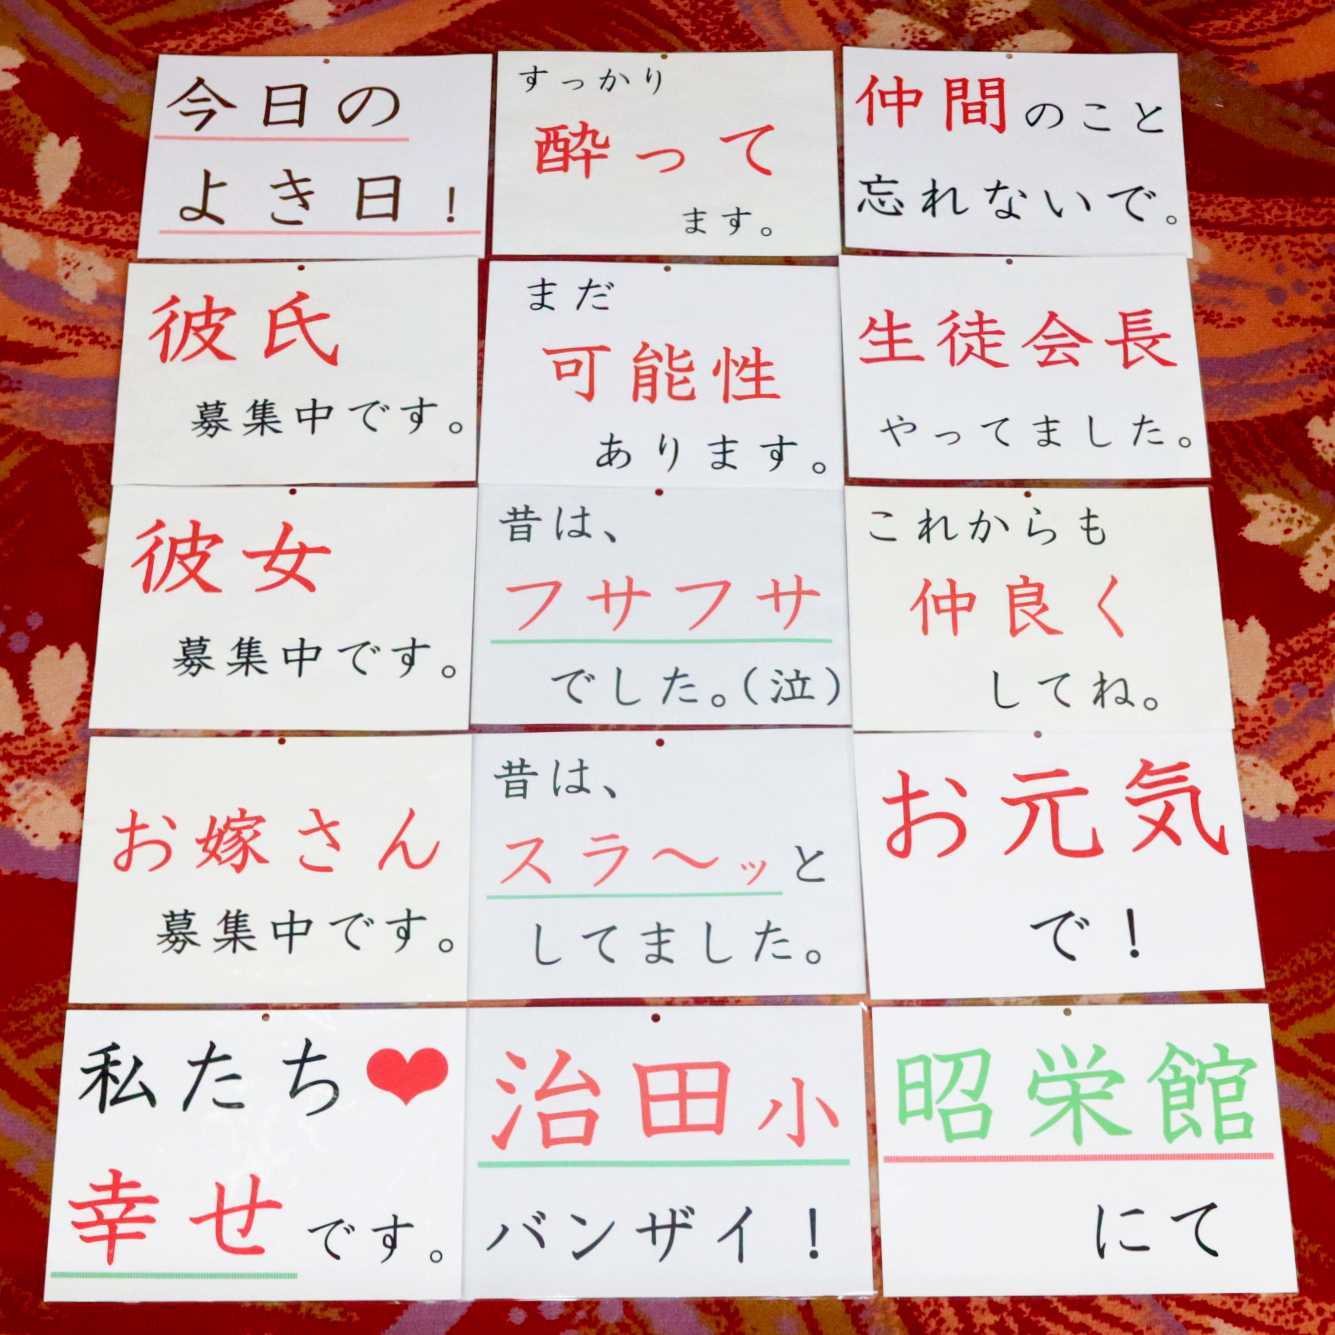 今日の
よき日！
すっかり
酔って
ます。
仲間のこと
忘れないで。
彼氏
募集中です。
まだ
可能性
あります。
生徒会長
やってました。
彼女
募集中です。
昔は、
フサフサ
でした。（泣）
これからも
仲良く
してね。
お嫁さん
募集中です。
昔は、
スラ〜ッと
してました。
お元気
で！
私たち❤
幸せです。
治田小
バンザイ！
昭栄館
にて